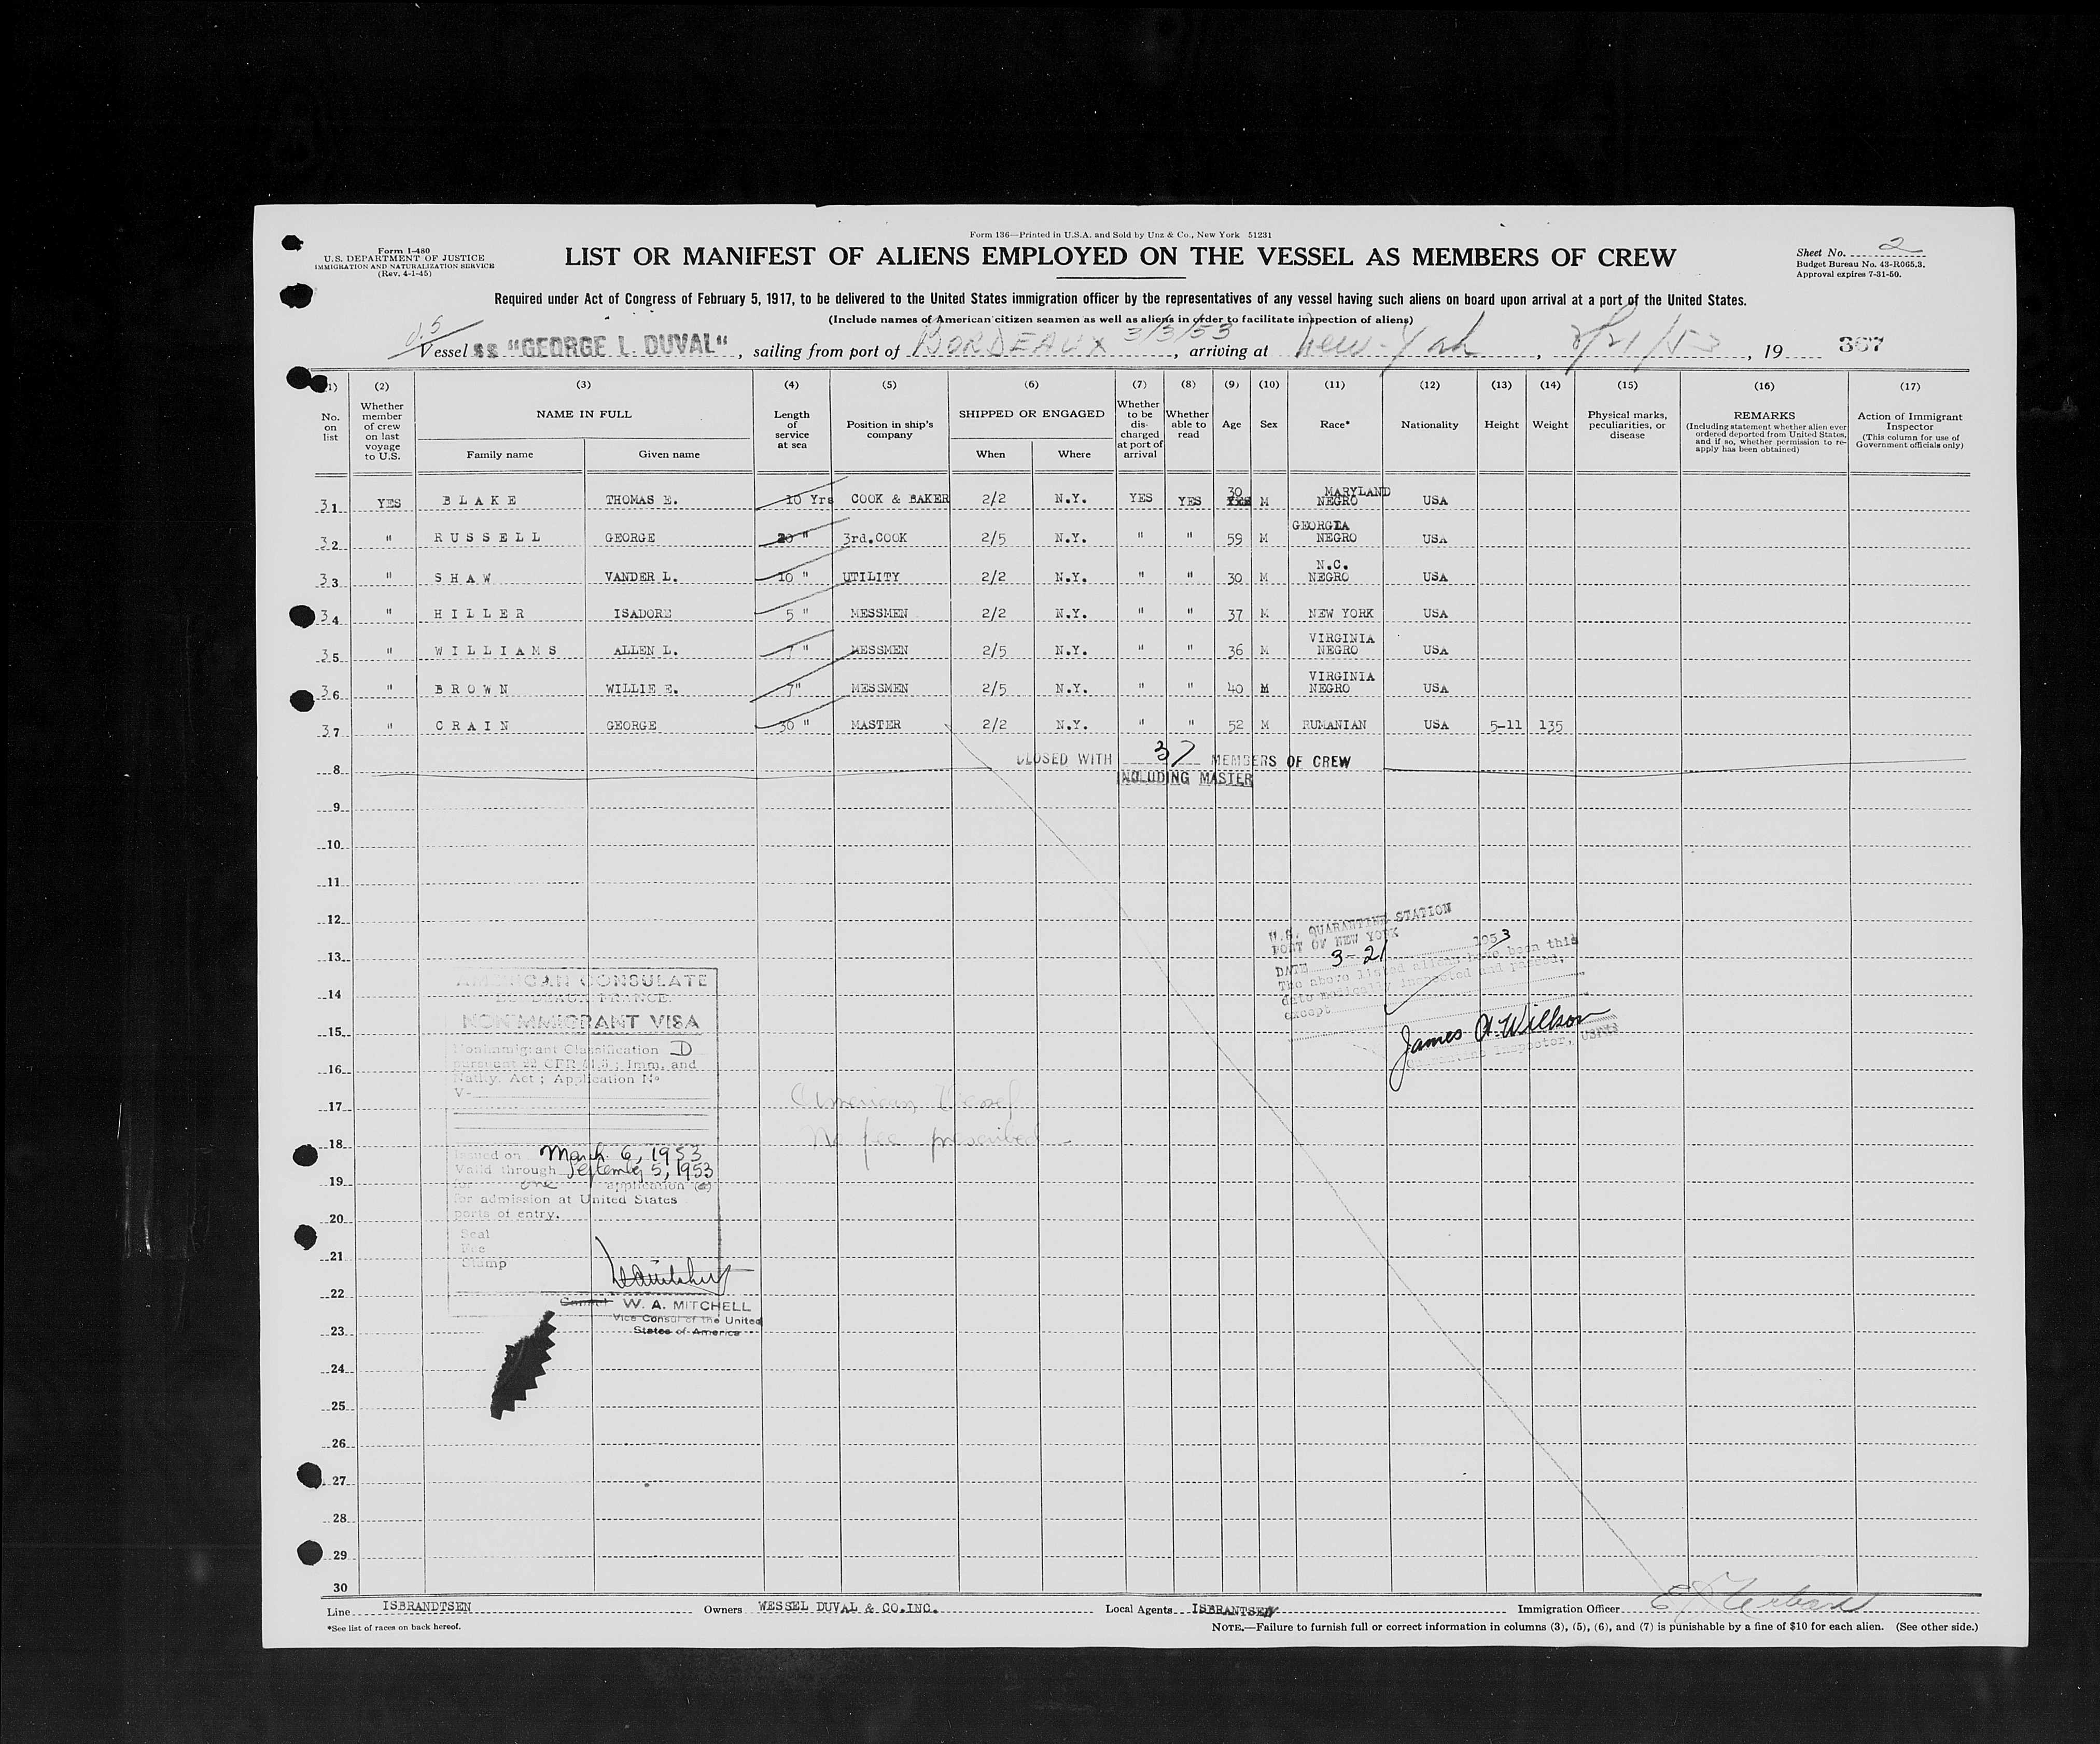 Form 136—Printed in U.S.A. and Sold by Unz & Co., New York 51231
Form I-480
U.S. DEPARTMENT OF JUSTICE
IMMIGRATION AND NATURALIZATION SERVICE
(Rev. 4-1-45)
LIST OR MANIFEST OF ALIENS EMPLOYED ON THE VESSEL AS MEMBERS OF CREW
Sheet No. 2
Budget Bureau No. 43-R065.3.
Approval expires 7-31-50.
Required under Act of Congress of February 5, 1917, to be delivered to the United States immigration officer by the representatives of any vessel having such aliens on board upon arrival at a port of the United States.
(Include names of American citizen seamen as well as aliens in order to facilitate inspection of aliens)
Vessel SS "GEORGE L. DUVAL", sailing from port of BORDEAUX 3/3/53, arriving at New York, 3/21/53, 19 367
(1) (2) (3) (4) (5) (6) (7) (8) (9) (10) (11) (12) (13) (14) (15) (16) (17)
No. on list
Whether member of crew on last voyage to U.S.
NAME IN FULL
Family name
Given name
Length of service at sea
Position in ship's company
SHIPPED OR ENGAGED
When
Where
Whether to be discharged at port of arrival
Whether able to read
Age
Sex
Race*
Nationality
Height
Weight
Physical marks, peculiarities, or disease
REMARKS
(Including statement whether alien ever ordered deported from United States, and if so, whether permission to reapply has been obtained)
Action of Immigrant Inspector
(This column for use of Government officials only)
31 YES BLAKE THOMAS E. 10 Yrs COOK & BAKER 2/2 N.Y. YES YES 30 M MARYLAND NEGRO USA
32 " RUSSELL GEORGE 20 " 3rd.COOK 2/5 N.Y. " " 59 M GEORGIA NEGRO USA
33 " SHAW VANDER L. 10 " UTILITY 2/2 N.Y. " " 30 M N.C. NEGRO USA
34 " HILLER ISADORE 5 " MESSMEN 2/2 N.Y. " " 37 M NEW YORK USA
35 " WILLIAMS ALLEN L. 7 " MESSMEN 2/5 N.Y. " " 36 M VIRGINIA NEGRO USA
36 " BROWN WILLIE E. 7" MESSMEN 2/5 N.Y. " " 40 M VIRGINIA NEGRO USA
37 " CRAIN GEORGE 30 " MASTER 2/2 N.Y. " " 52 M RUMANIAN USA 5-11 135
CLOSED WITH 37 MEMBERS OF CREW
INCLUDING MASTER
8
9
10
11
12
13
14
15
16
17
18
19
20
21
22
23
24
25
26
27
28
29
30
U.S. QUARANTINE STATION
PORT OF NEW YORK
DATE 3-21 1953
The above listed aliens have been this
date medically inspected and passed,
except
James A. Willson
Quarantine Inspector, USPHS
AMERICAN CONSULATE
BORDEAUX FRANCE
NONIMMIGRANT VISA
Nonimmigrant Classification D
pursuant 22 CFR 41.5; Imm. and
Natly. Act; Application No
V-
Issued on March 6, 1953
Valid through September 5, 1953
for one application (s)
for admission at United States
ports of entry.
Seal
Fee
Stamp
Consul W. A. MITCHELL
Vice Consul of the United
States of America
American Vessel
No fee prescribed
Line ISBRANDTSEN Owners WESSEL DUVAL & CO.INC. Local Agents ISBRANTSEN Immigration Officer
*See list of races on back hereof.
NOTE.—Failure to furnish full or correct information in columns (3), (5), (6), and (7) is punishable by a fine of $10 for each alien. (See other side.)